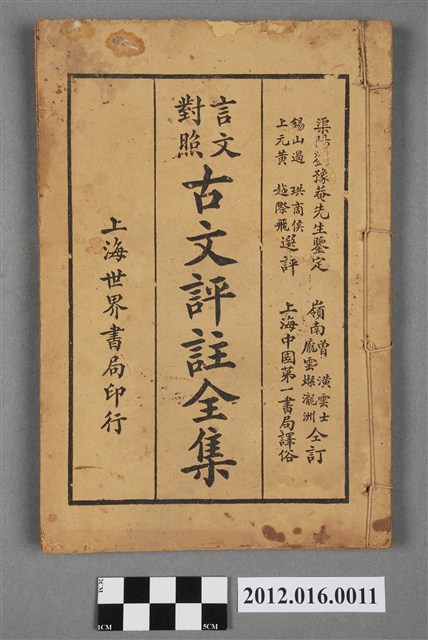 渠陽劉豫菴先生鑒定
錫山過 珙商侯
上元黃 越際飛
選評
嶺南曾 潢雲士
龐雲燦瀧洲
仝訂
上海中國第一書局譯俗
言文
對照
古文評註全集
上海世界書局印行
2CM
1CM
5CM
2012.016.0011